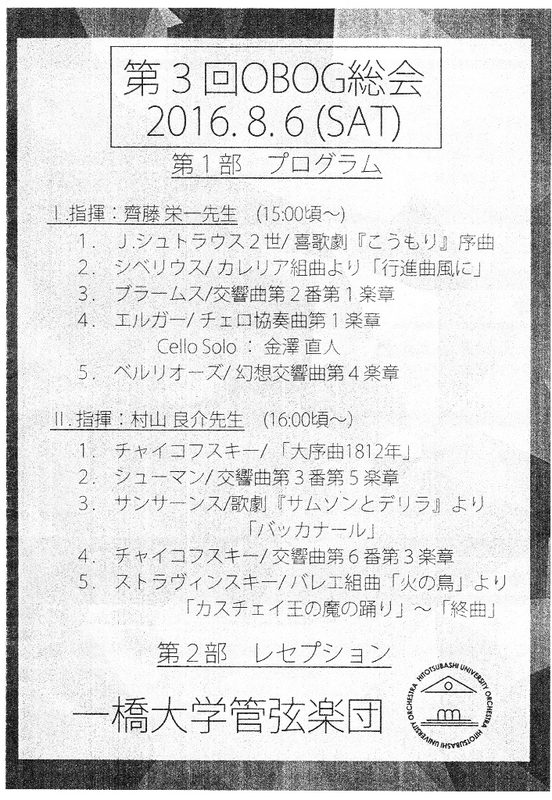 第3回OBOG総会
2016.8.6(SAT)
第1部　プログラム
Ⅰ.指揮：齊藤 栄一先生　(15:00頃～)
1．　J.シュトラウス2世/ 喜歌劇『こうもり』序曲
2．　シベリウス/ カレリア組曲より「行進曲風に」
3．　ブラームス/交響曲第2番第1楽章
4．　エルガー/ チェロ協奏曲第1楽章
Cello Solo ： 金澤 直人
5．　ベルリオーズ/ 幻想交響曲第4楽章
Ⅱ.指揮：村山 良介先生　(16:00頃～)
1．　チャイコフスキー/ 「大序曲1812年」
2．　シューマン/ 交響曲第3番第5楽章
3．　サンサーンス/歌劇『サムソンとデリラ』より
「バッカナール」
4．　チャイコフスキー/ 交響曲第6番第3楽章
5．　ストラヴィンスキー/ バレエ組曲「火の鳥」より
「カスチェイ王の魔の踊り」～「終曲」
第2部　レセプション
一橋大学管弦楽団
HITOTSUBASHI UNIVERSITY ORCHESTRA HITOTSUBASHI UNIVERSITY ORCHESTRA